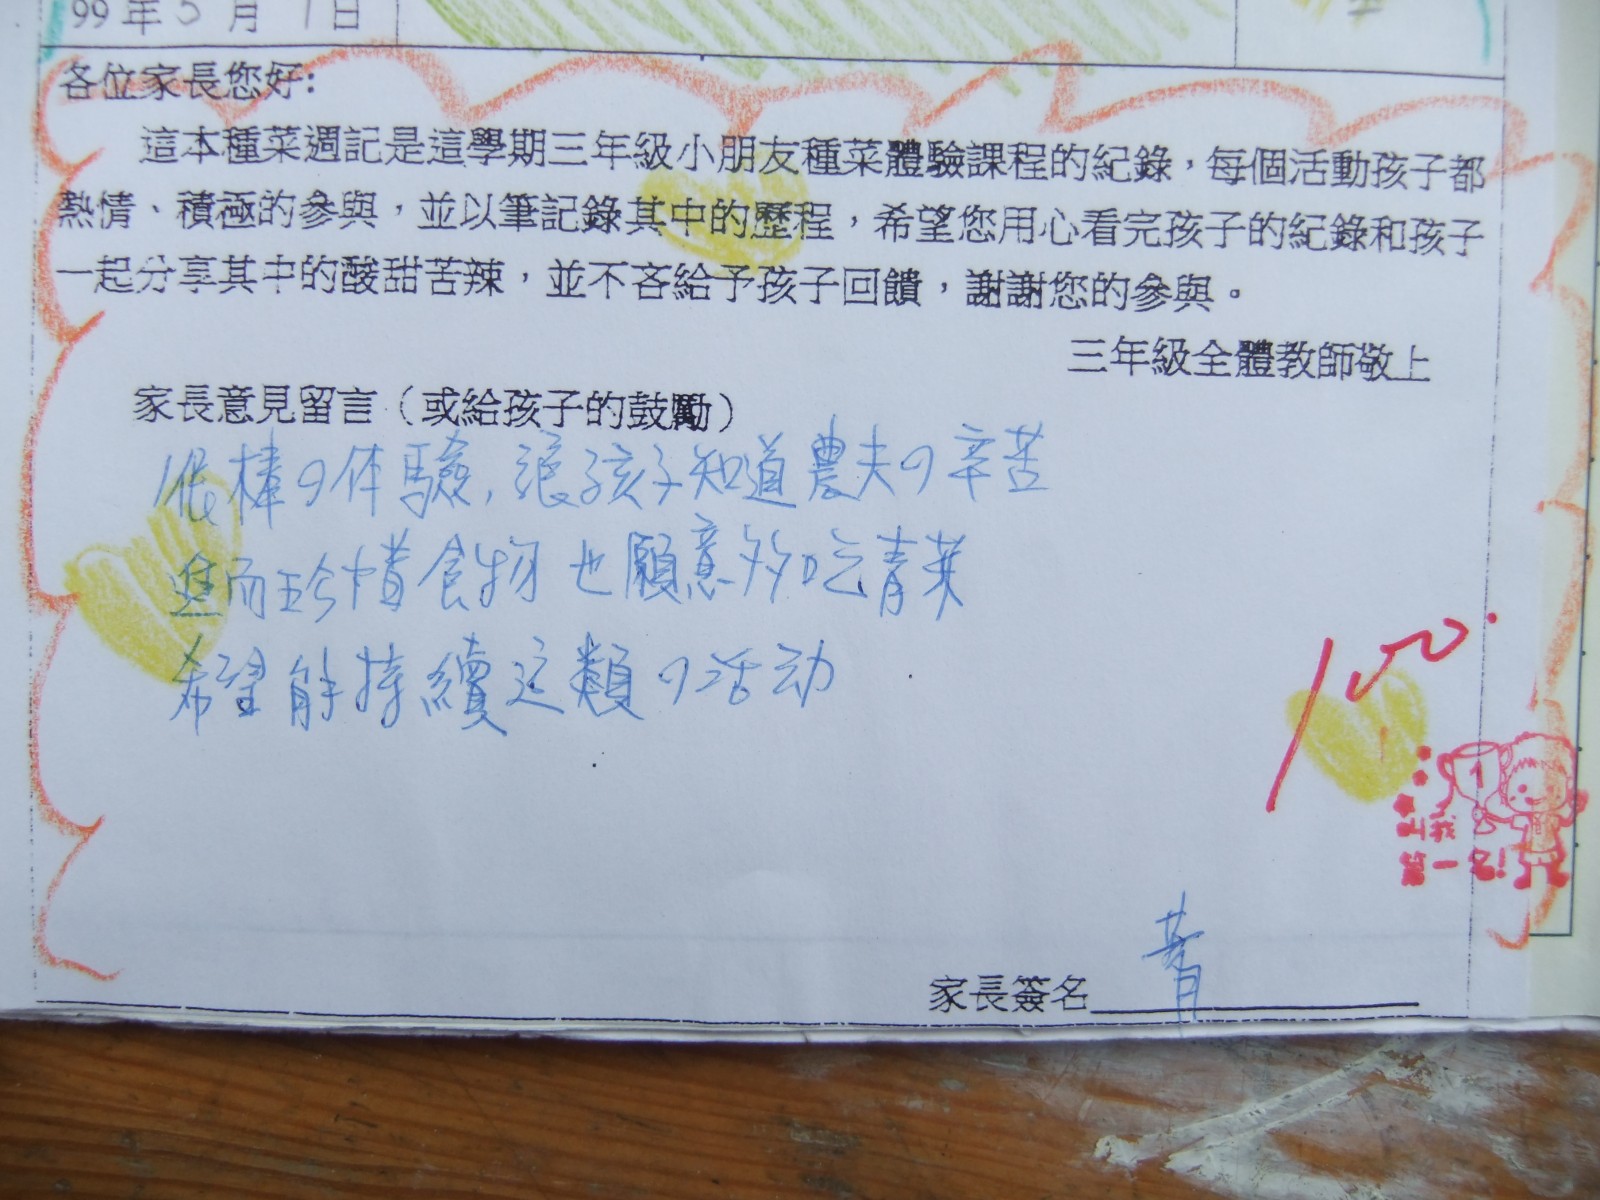 99年5月1日
各位家長您好:
這本種菜週記是這學期三年級小朋友種菜體驗課程的紀錄，每個活動孩子都
熱情、積極的參與，並以筆記錄其中的歷程，希望您用心看完孩子的紀錄和孩子
一起分享其中的酸甜苦辣，並不吝給予孩子回饋，謝謝您的參與。
三年級全體教師敬上
家長意見留言（或給孩子的鼓勵）
很棒の体驗,讓孩子知道農夫の辛苦
進而珍惜食物也願意多吃青菜
希望能持續这類の活动
100.
1
叫我
第一名!
家長簽名